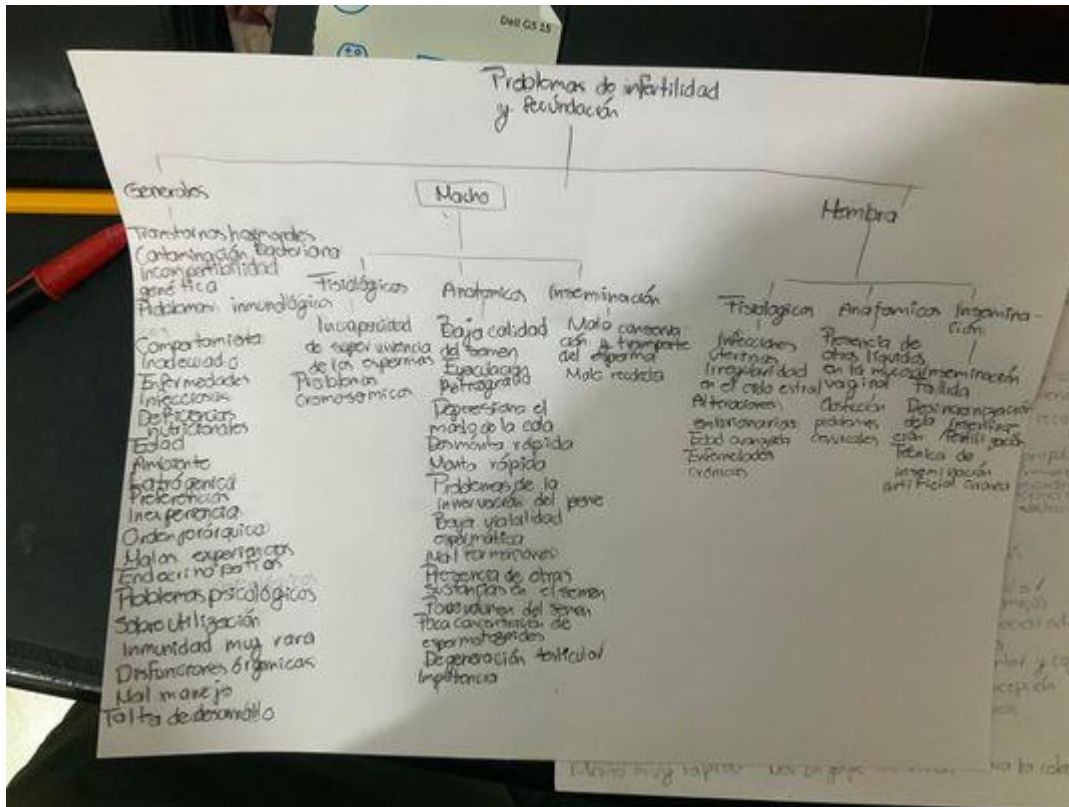 Dell G5 15
Problemas de infertilidad
y fecundación
Generales
Transtornos hormonales
Contaminación Bacteriana
Incompatibilidad
genética
Problemas inmunológico
Comportamiento
inadecuado
Enfermedades
Infecciosas
Deficiencias
nutricionales
Edad
Ambiente
Iatrogenica
Preferencias
Inexperiencia
Orden jerárquico
Malas experiencias
Endocrinopatias
Problemas psicológicos
Sobre utilización
Inmunidad muy rara
Disfunciones órganicas
Mal manejo
Falta de desarrollo
Macho
Fisiológicos
Incapacidad
de supervivencia
de los espermas
Problemas
cromosomicos
Anatomicos
Baja calidad
del semen
Eyaculación
Retrograda
Depresiona el
de la cola
Desmonta rápida
Monta rápida
Problemas de la
innervación del pene
Baja viabilidad
espermática
Malformaciones
Presencia de otras
sustancias en el semen
Poco volumen del semen
Poca concentración de
espermatozoides
Degeneración testicular
Impotencia
Inseminación
Mala conserva-
ción y transporte
del esperma
Mala recolecta
Hembra
Fisiologicos
Infecciones
Uterinas
Irregularidad
en el ciclo estral
Alteraciones
embrionarias
Edad avanzada
Enfermedades
Crónicas
Anatomicos
Presencia de
otros líquidos
en la mucosa
vaginal
problemas
cervicales
Insemina-
ción
Inseminación
Fallida
de la insemina-
ción
Técnica de
inseminación
artificial